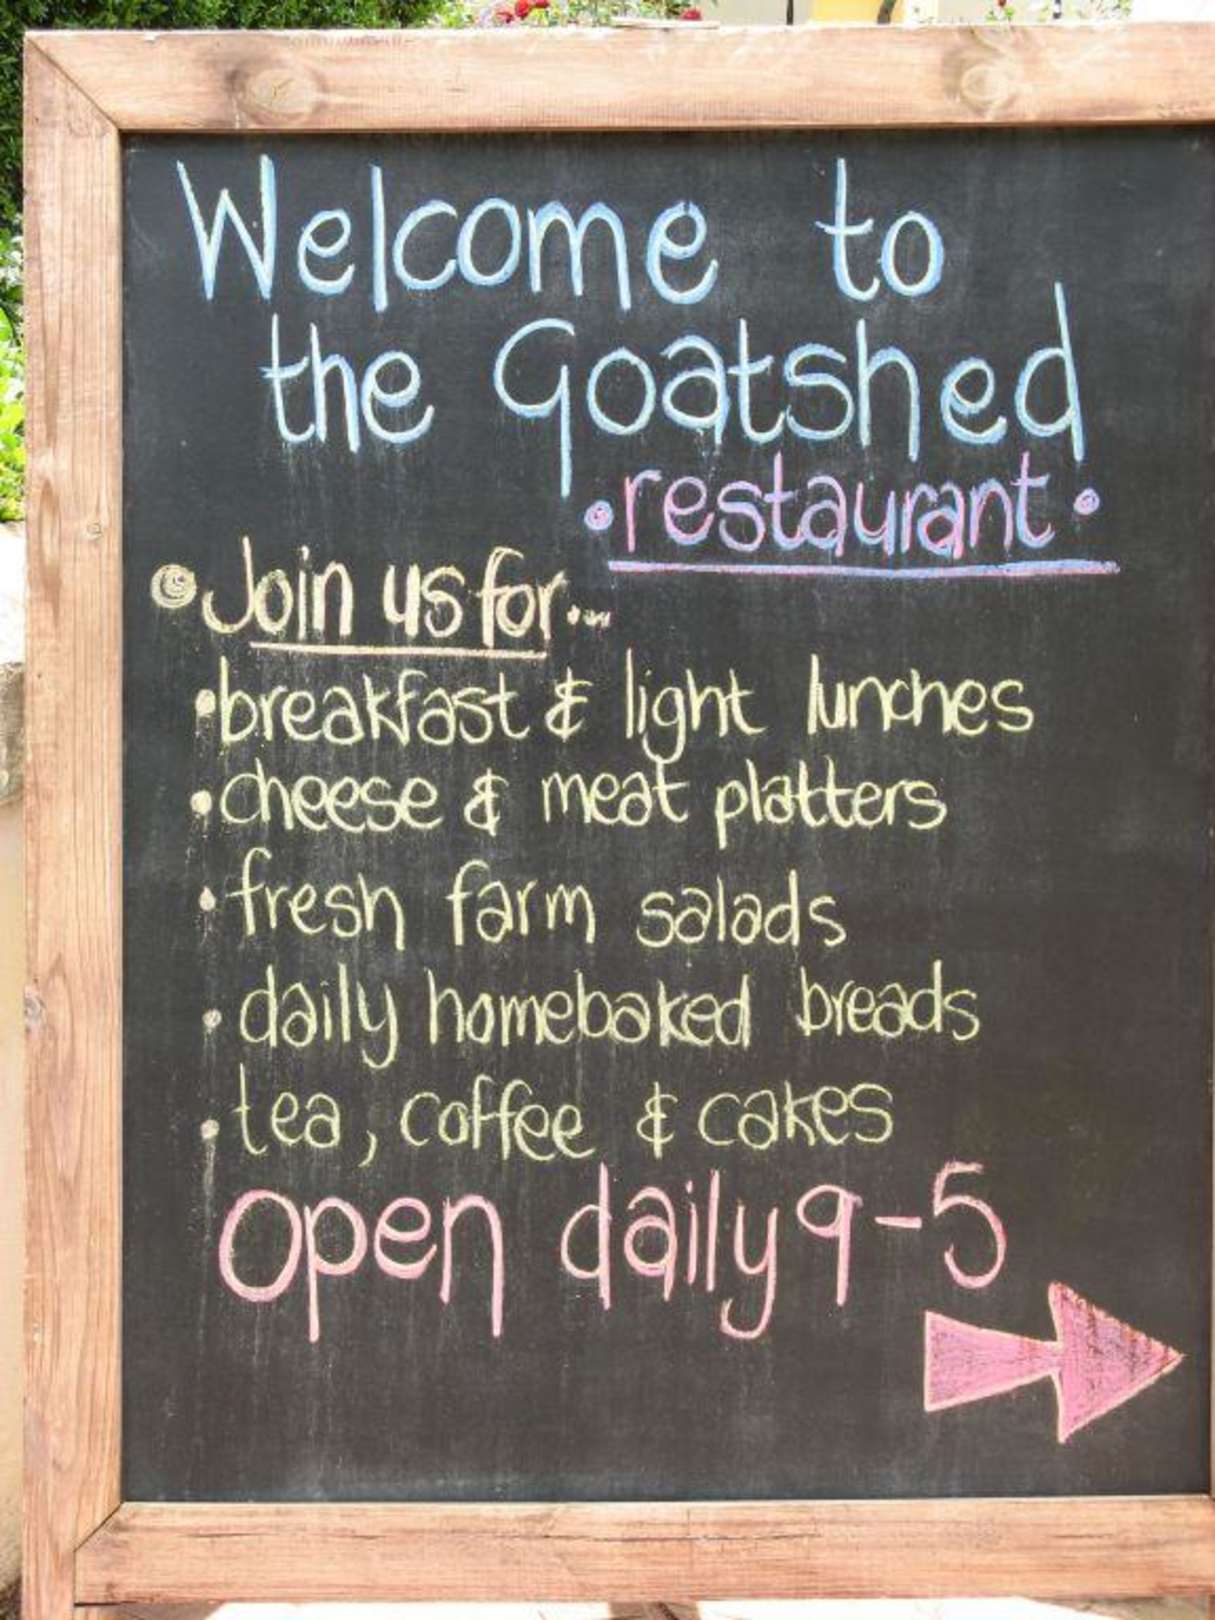 Welcome to
the Goatshed
• restaurant •
• Join us for...
• breakfast & light lunches
• cheese & meat platters
• fresh farm salads
• daily homebaked breads
• tea, coffee & cakes
Open daily 9-5